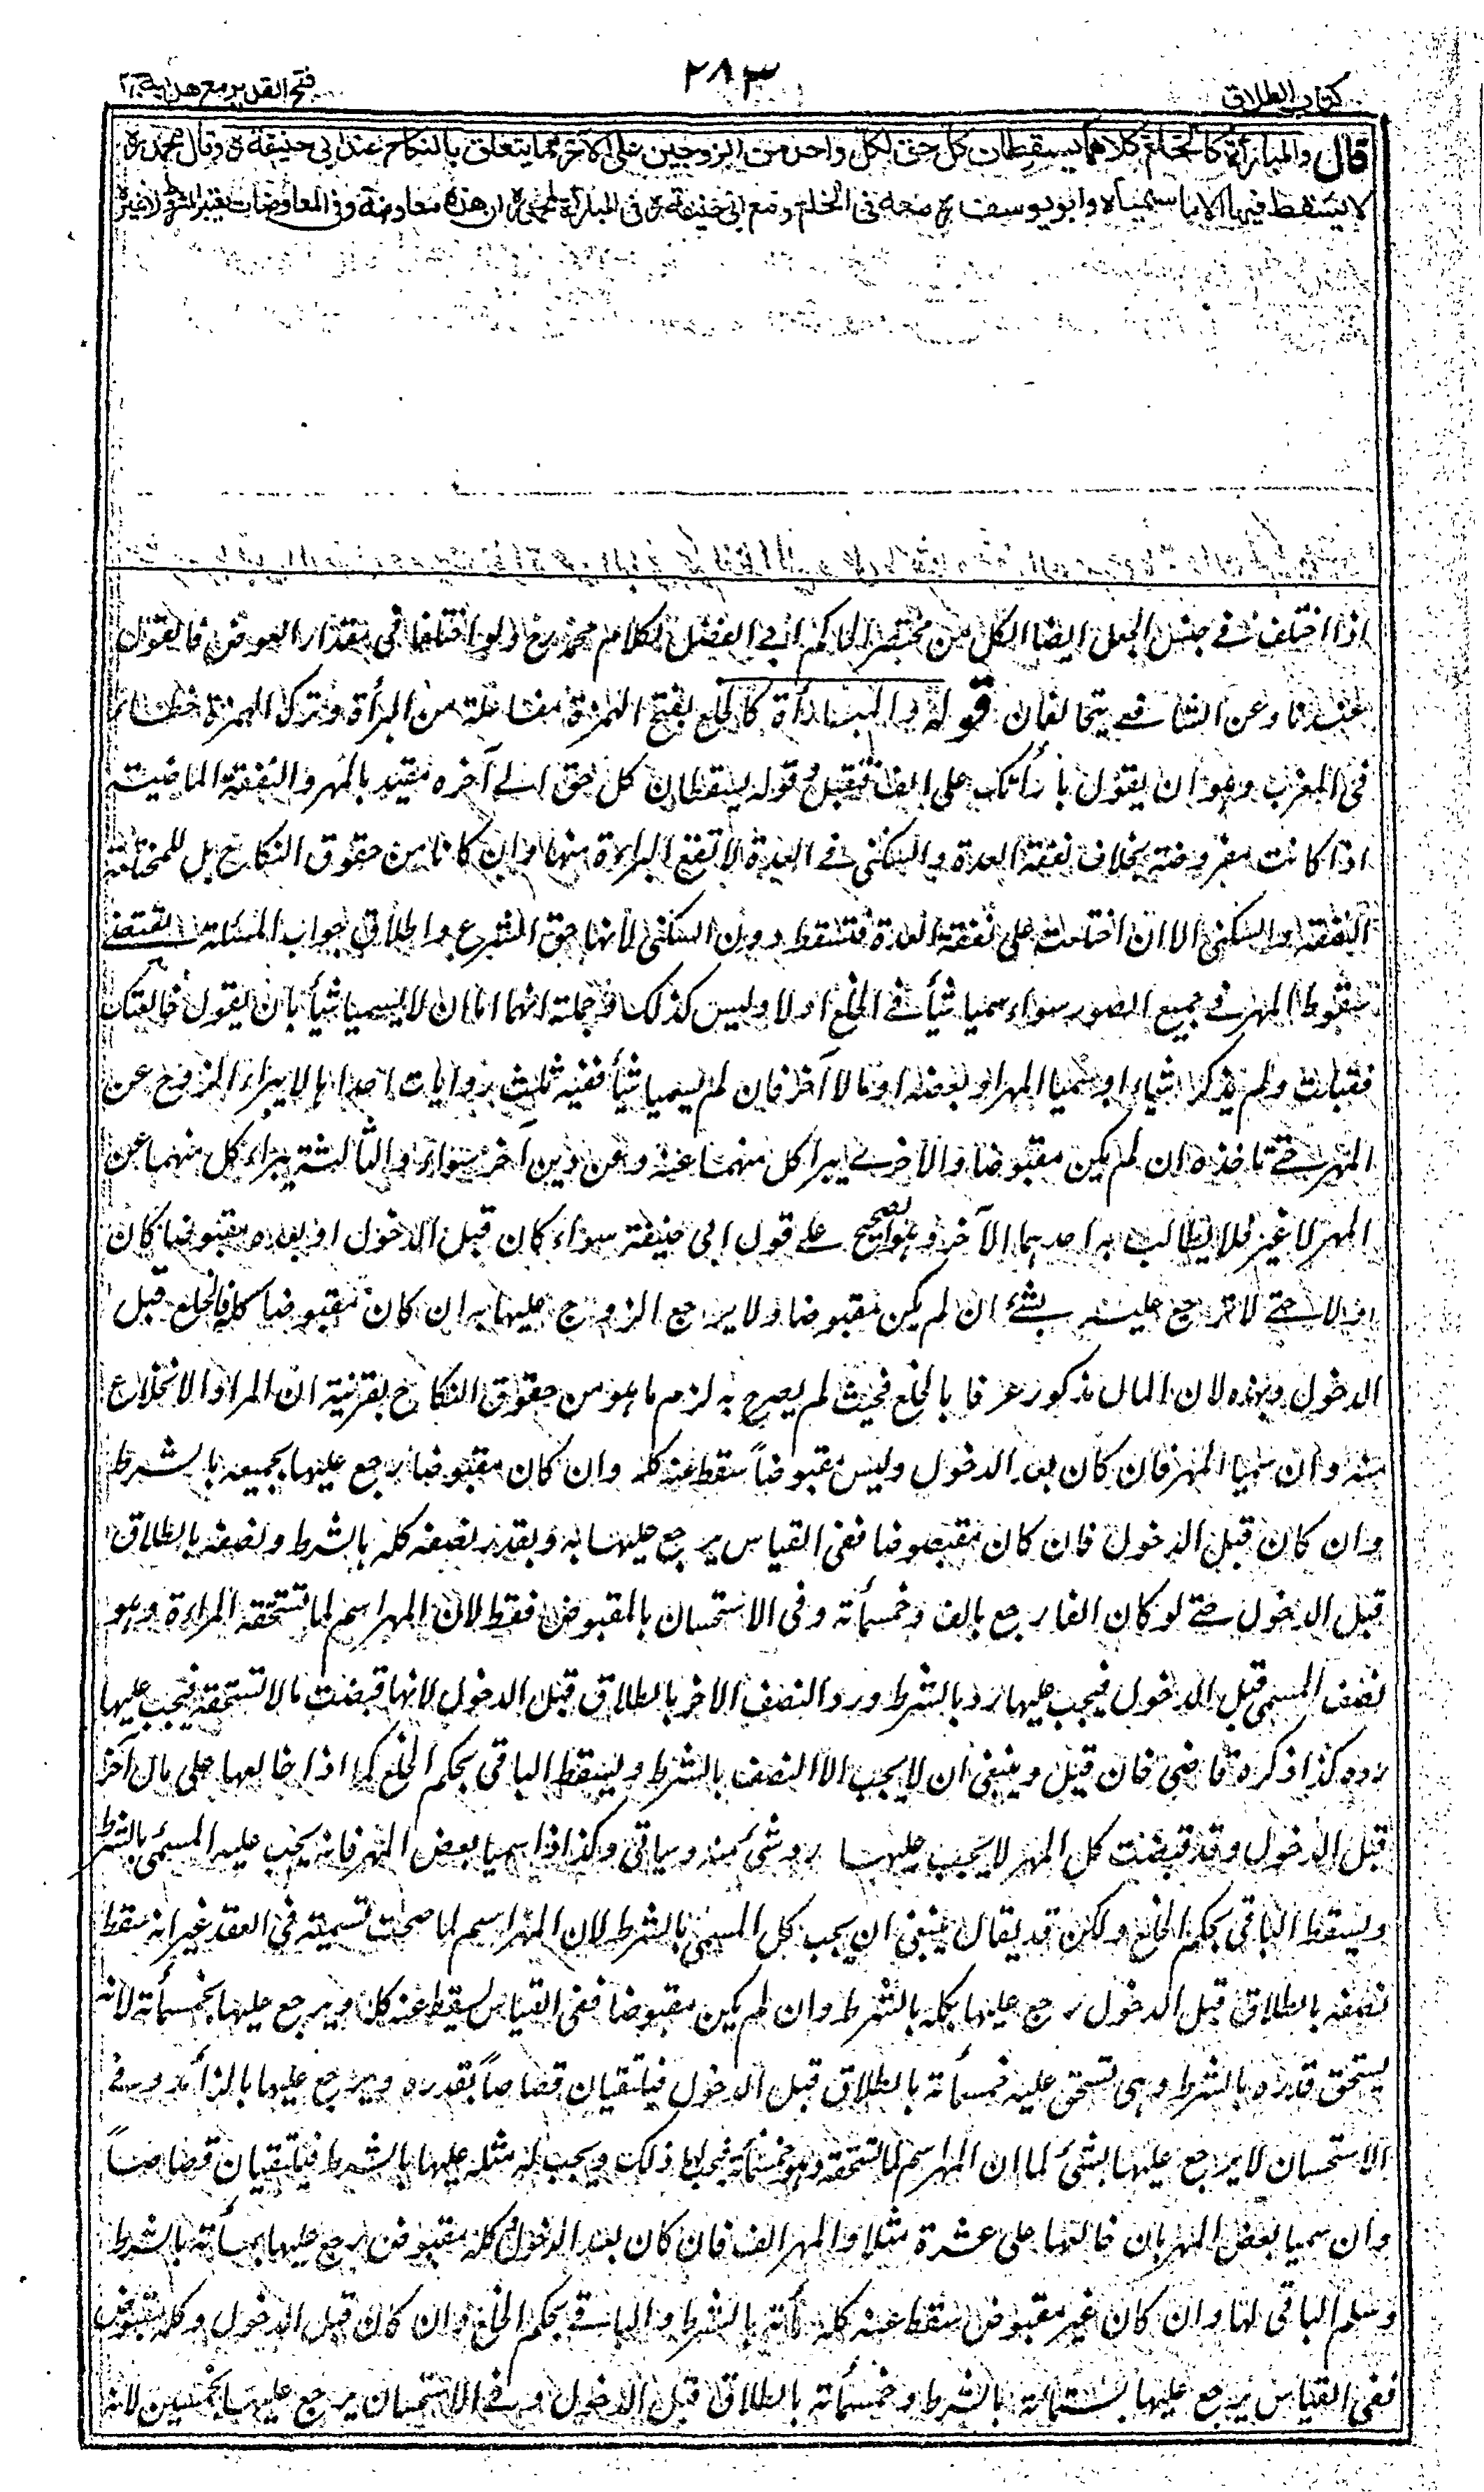 كتاب الطلاق
٢٨٣
فتح القدير مع هداية ج٢
قال والمبارأة كالخلع كلاهما يسقطان كل حق لكل واحد من الزوجين على الآخر مما يتعلق بالنكاح عند ابى حنيفة رح وقال محمد رح
لا يسقط فيهما الا ما سمياه وابو يوسف رح معه فى الخلع ومع ابى حنيفة رح فى المبارأة لمحمد رح ان هذه معاوضة وفى المعاوضات يعتبر المشروط لا غيره
اذا اختلف فى جنس الجعل ايضا الكل من مختصر الحاكم ابى الفضل لكلام محمد رح ولو اختلفا فى مقدار العوض فالقول
عندنا وعن الشافعى يتحالفان قوله والمبارأة كالخلع بفتح الهمزة مفاعلة من البرأة وترك الهمزة خطأ
فى المغرب وهو ان يقول بارأتك على الف فتقبل وقوله يسقطان كل حق الى آخره مقيد بالمهر والنفقة الماضية
اذا كانت مفروضة بخلاف نفقة العدة والسكنى فى العدة لا تقع البراءة منها وان كانا من حقوق النكاح بل للمختلعة
النفقة والسكنى الا ان اختلعت على نفقة العدة فتسقط دون السكنى لانها حق الشرع واطلاق جواب المسئلة يقتضى
سقوط المهر فى جميع الصور سواء سميا شيأ فى الخلع او لا وليس كذلك فجملته انهما اما ان لا يسميا شيأ بان يقول خالعتك
فقبلت ولم يذكرا شياء او سميا المهر او بعضه او مالا آخر فان لم يسميا شيأ ففيه ثلث روايات احدها لا يبراء الزوج عن
المهر حتى تاخذه ان لم يكن مقبوضا والاخرى يبرا كل منهما عنه وعن دين آخر سواه والثالثة يبراء كل منهما عن
المهر لا غير فلا يطالب به احدهما الآخر وهو الصحيح على قول ابى حنيفة سواء كان قبل الدخول او بعده مقبوضا كان
اولا حتى لا ترجع عليه بشئ ان لم يكن مقبوضا ولا يرجع الزوج عليها به ان كان مقبوضا كله والخلع قبل
الدخول وهذه لان المال مذكور عرفا بالخلع فحيث لم يصرح به لزم ما هو من حقوق النكاح بقرينة ان المراد الانخلاع
منه وان سميا المهر فان كان بعد الدخول وليس مقبوضاً سقط عنه كله وان كان مقبوضا رجع عليها بجميعه بالشرط
وان كان قبل الدخول فان كان مقبوضا ففى القياس يرجع عليها به وبقدر نصفه كله بالشرط ونصفه بالطلاق
قبل الدخول حتى لو كان الفا رجع بالف وخمسمأته وفى الاستحسان بالمقبوض فقط لان المهر اسم لما تستحقه المراءة وهو
نصف المسمى قبل الدخول فيجب عليها رد بالشرط ورد النصف الاخر بالطلاق قبل الدخول لانها قبضت مالا تستحقه فيجب عليها
رده كذا ذكره قاضى خان فان قيل وينبغى ان لا يجب الا النصف بالشرط ويسقط الباقى بحكم الخلع كما اذا خالعها على مال آخر
قبل الدخول وقد قبضت كل المهر لا يجب عليها رد شئ منه وسياتى وكذا اذا سميا بعض المهر فانه يجب عليه المسمى بالشرط
ويسقط الباقى بحكم الخلع ولكن قد يقال ينبغى ان يجب كل المسمى بالشرط لان المهر اسم لما صحت تسميته فى العقد غير انه سقط
نصفه بالطلاق قبل الدخول رجع عليها بكله بالشرط وان لم يكن مقبوضا ففى القياس يسقط عنه كله ويرجع عليها بخمسمأته لانه
يستحق قدره بالشرط وهى تستحق عليه خمسمأته بالطلاق قبل الدخول فيلتقيان قصاصاً بقدره ويرجع عليها بالزائد وفى
الاستحسان لا يرجع عليها بشئ لما ان المهر اسم لما تستحقه وهو خمسمأته فيجب لها ذلك ويجب له مثله عليها بالشرط فيلتقيان قصاصاً
وان سميا بعض المهر بان خالعها على عشرة مثلا والمهر الف فان كان بعد الدخول وكله مقبوض رجع عليها بمأته بالشرط
وسلم الباقى لها وان كان غير مقبوض سقط عنه كله مأته بالشرط والباقى بحكم الخلع وان كان قبل الدخول وكله مقبوض
ففى القياس يرجع عليها بستمأته مأته بالشرط وخمسمأته بالطلاق قبل الدخول وفى الاستحسان يرجع عليها بخمسين لانه